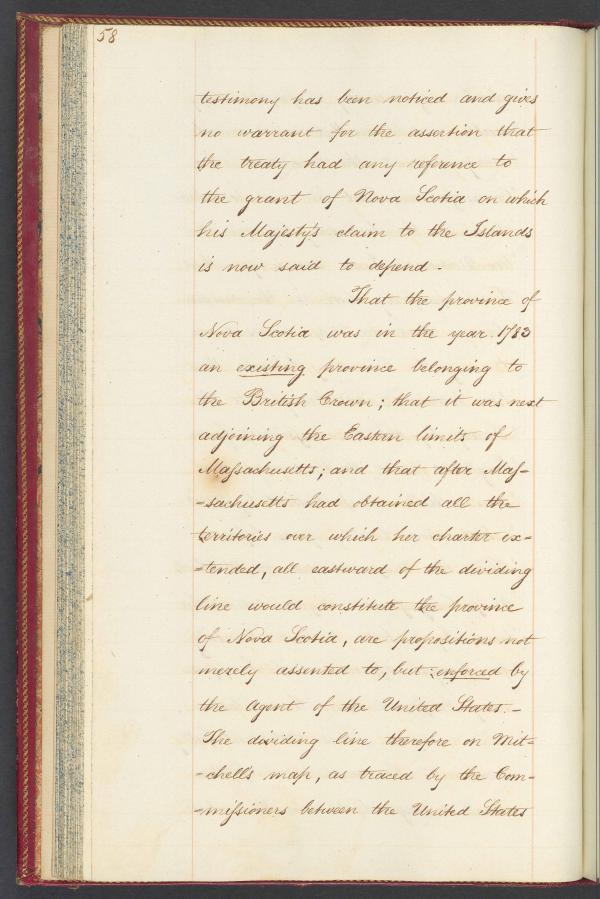 58
testimony has been noticed and gives
no warrant for the assertion that
the treaty had any reference to
the grant of Nova Scotia on which
his Majesty's claim to the Islands
is now said to depend.
That the province of
Nova Scotia was in the year 1783
an existing province belonging to
the British Crown; that it was next
adjoining the Eastern limits of
Maſsachusetts; and that after Maſ-
-sachusetts had obtained all the
territories over which her charter ex-
-tended, all eastward of the dividing
line would constitute the province
of Nova Scotia, are propositions not
merely assented to, but enforced by
the Agent of the United States.-
The dividing line therefore on Mit-
-chell's map, as traced by the Com-
-miſsioners between the United States